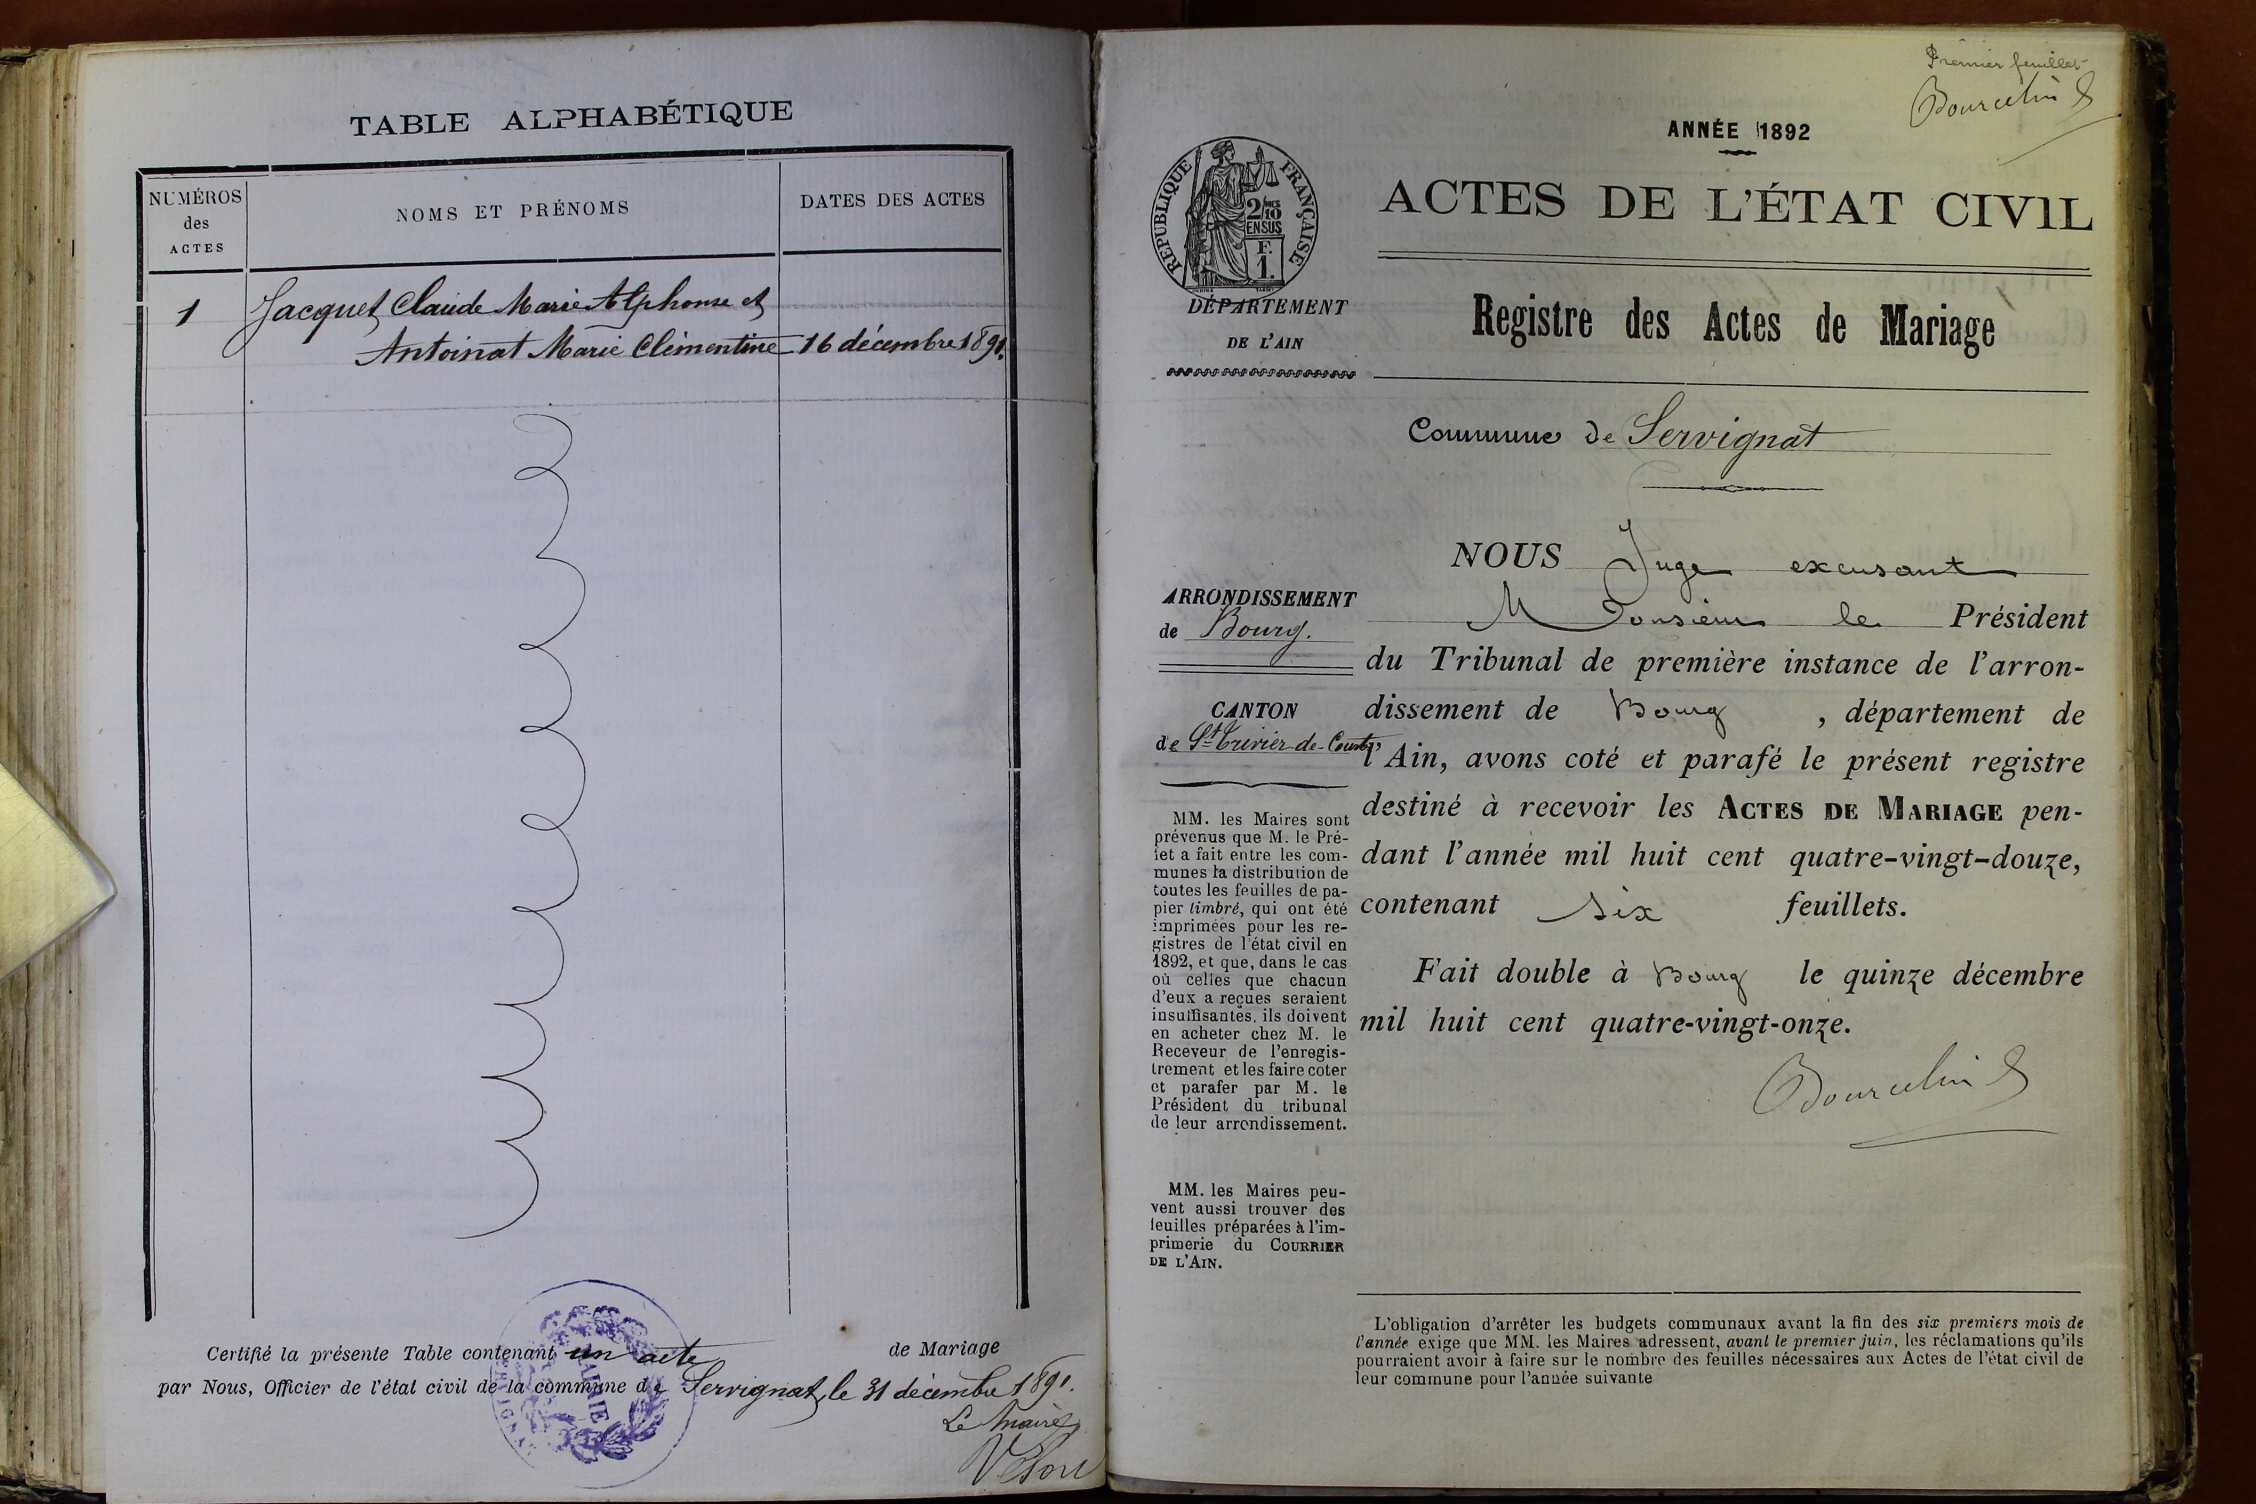 TABLE ALPHABÉTIQUE
NUMÉROS
des
ACTES
NOMS ET PRÉNOMS
DATES DES ACTES
1
Jacquet Claude Marie Alphonse et
Antoinat Marie Clémentine 16 décembre 1891.
Certifié la présente Table contenant un acte de Mariage
par Nous, Officier de l'état civil de la commune de Servignat, le 31 décembre 1891.
Le Maire
MAIRIE
Premier feuillet
Bourcelin
ANNÉE 1892
RÉPUBLIQUE FRANÇAISE
2/10
EN SUS
F.
1.
ACTES DE L'ÉTAT CIVIL
DÉPARTEMENT
DE L'AIN
Registre des Actes de Mariage
Commune de Servignat
ARRONDISSEMENT
de Bourg.
CANTON
de St Trivier-de-Courtes
MM. les Maires sont
prévenus que M. le Pré-
fet a fait entre les com-
munes la distribution de
toutes les feuilles de pa-
pier timbré, qui ont été
imprimées pour les re-
gistres de l'état civil en
1892, et que, dans le cas
où celles que chacun
d'eux a reçues seraient
insuffisantes, ils doivent
en acheter chez M. le
Receveur de l'enregis-
trement et les faire coter
et parafer par M. le
Président du tribunal
de leur arrondissement.
MM. les Maires peu-
vent aussi trouver des
feuilles préparées à l'im-
primerie du COURRIER
DE L'AIN.
NOUS Juge excusant
Monsieur le Président
du Tribunal de première instance de l'arron-
dissement de Bourg, département de
l'Ain, avons coté et parafé le présent registre
destiné à recevoir les ACTES DE MARIAGE pen-
dant l'année mil huit cent quatre-vingt-douze,
contenant six feuillets.
Fait double à Bourg le quinze décembre
mil huit cent quatre-vingt-onze.
Bourcelin
L'obligation d'arrêter les budgets communaux avant la fin des six premiers mois de
l'année exige que MM. les Maires adressent, avant le premier juin, les réclamations qu'ils
pourraient avoir à faire sur le nombre des feuilles nécessaires aux Actes de l'état civil de
leur commune pour l'année suivante